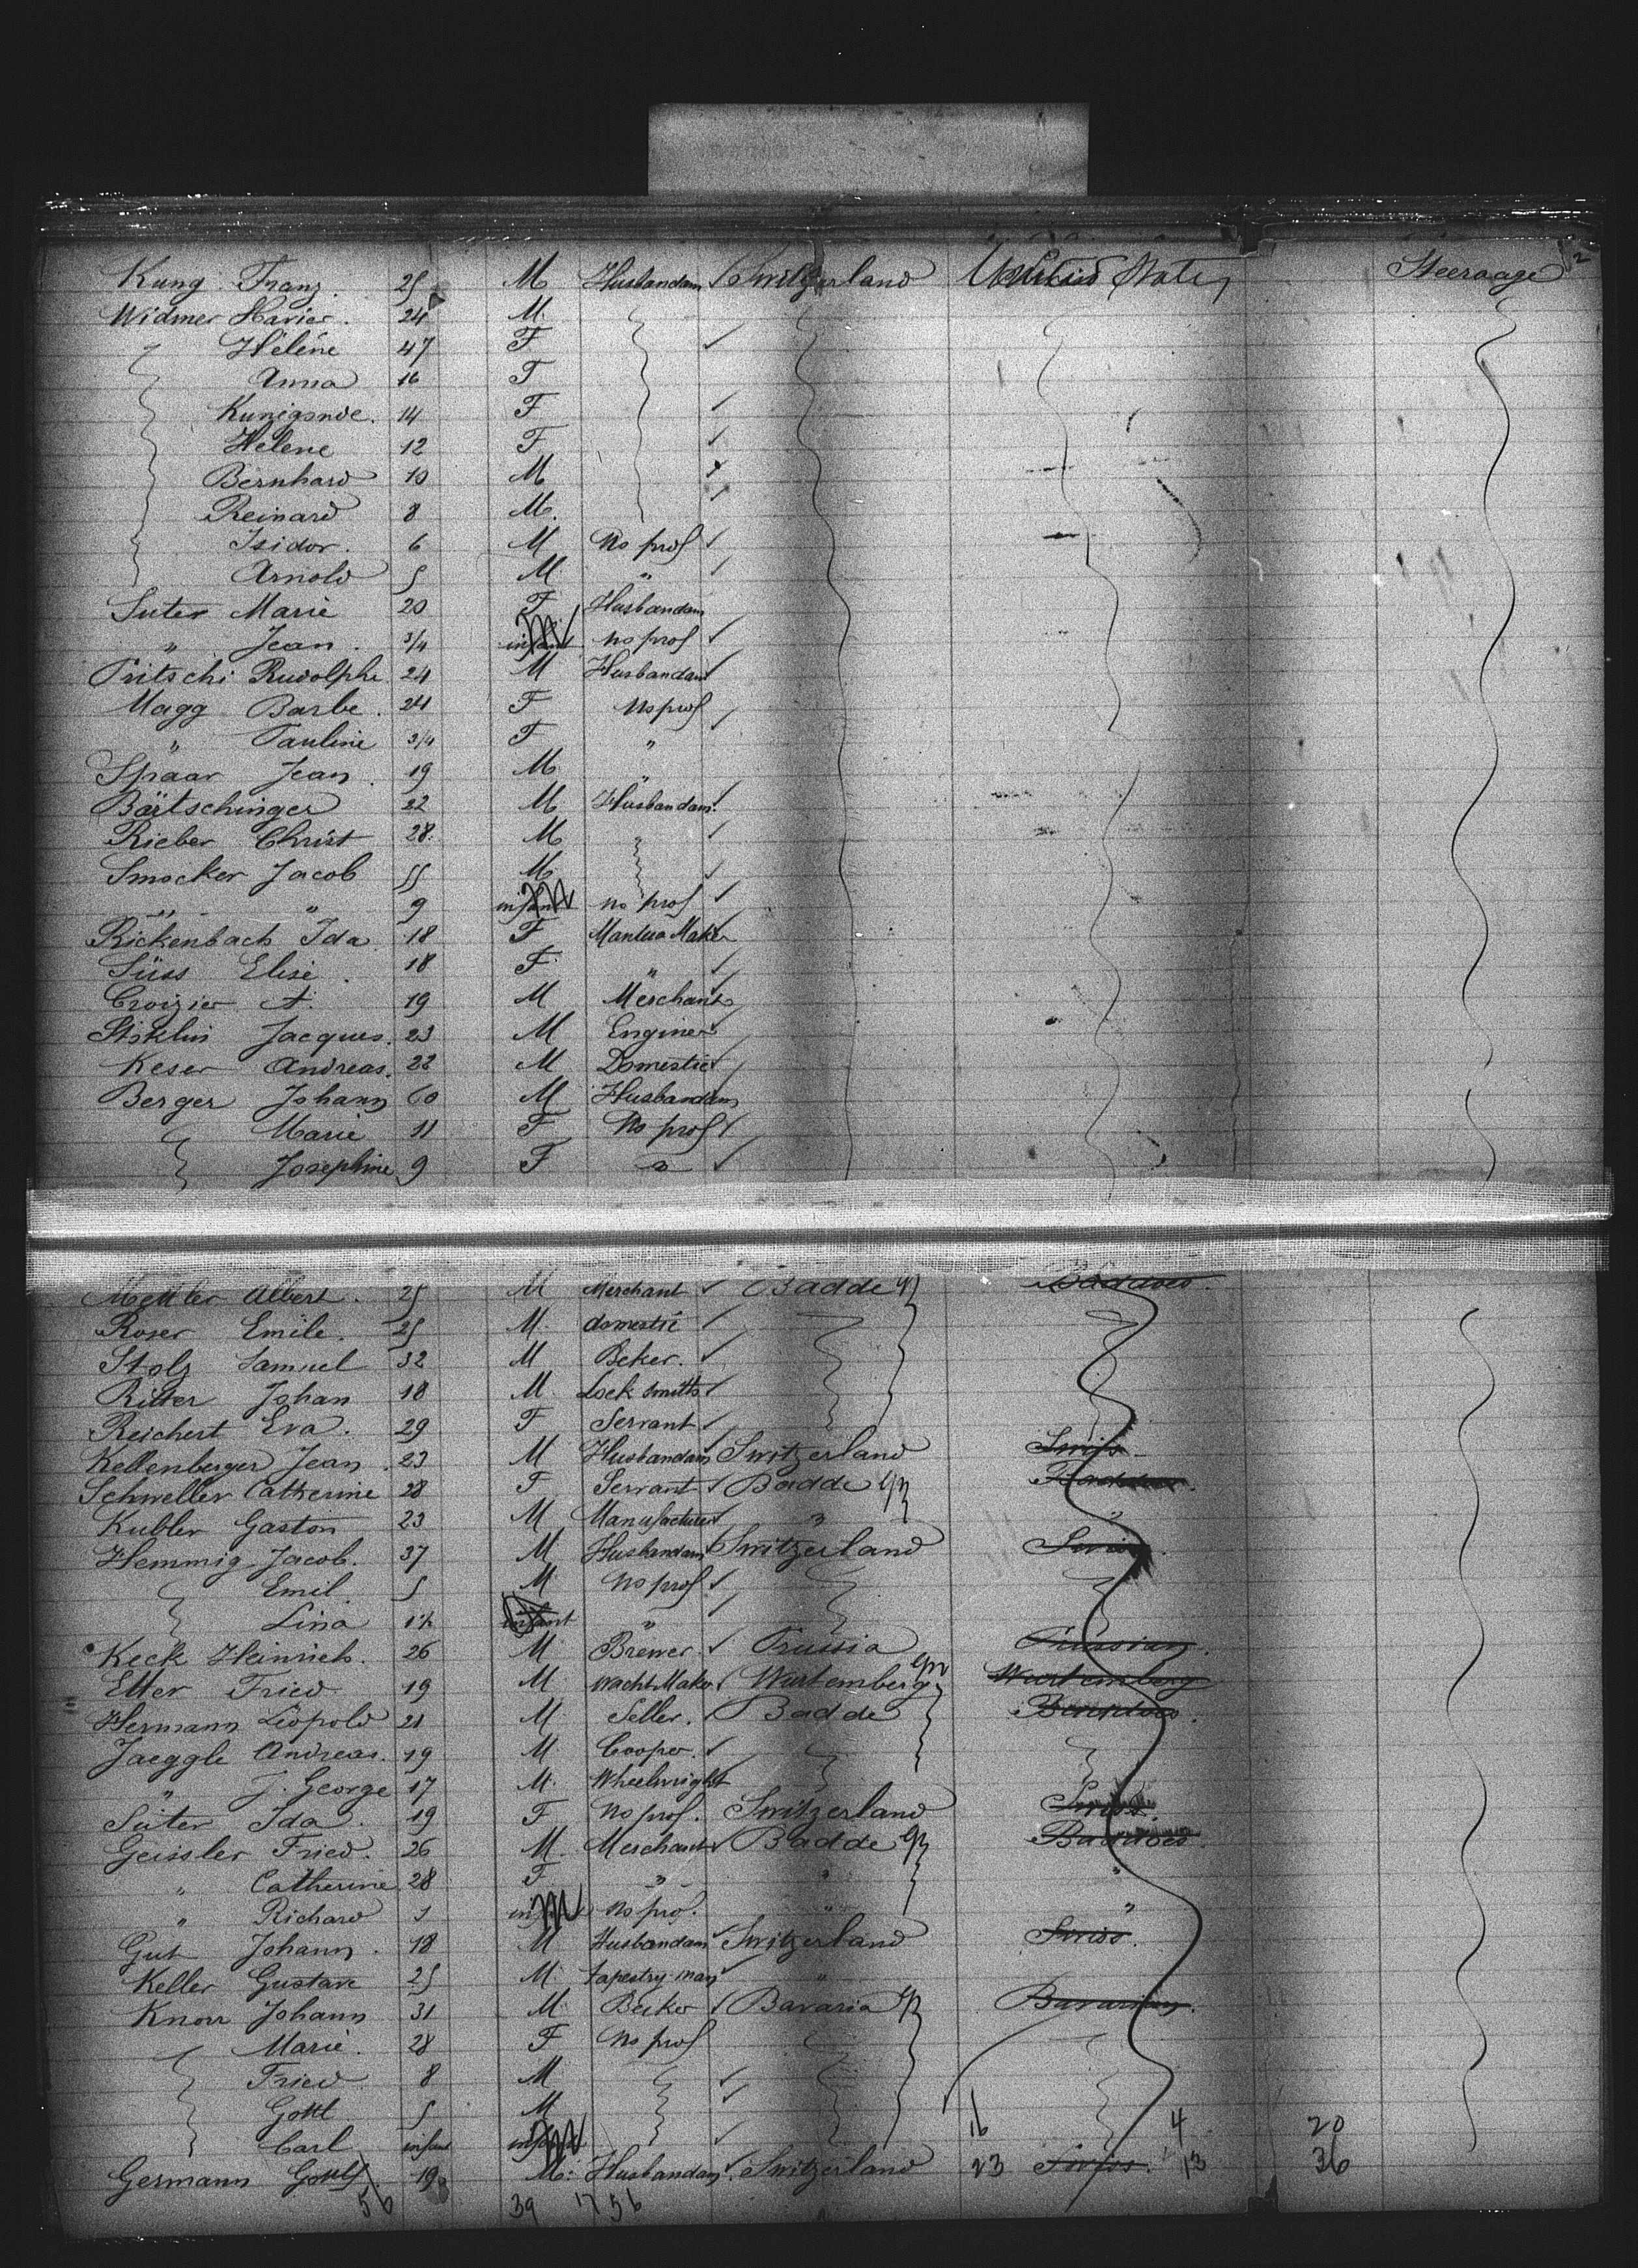 Kung Franz. 25 M Husbandam Switzerland United States Steeraage 2
Widmer Xavier. 24 M.
Héléne 47 F
Anna 16 F
Kunigonde. 14 F
Héléne 12 F
Bernhard 10 M
Reinard 8 M.
Isidor. 6 M No prof
Arnold 5 M "
Suter Marie 20 F Husbandam
" Jean. 3/4 infant M no prof
Fritschi Rudolphe 24 M Husbandam
Magg Barbe. 24 F No prof
" Pauline 3/4 F "
Spaar Jean. 19 M "
Bärtschinger 22 M Husbandam.
Rieber Christ 28. M
Smocker Jacob 55 M
" " 9 infant M no prof
Rickenbach Ida. 18 F Mantua Maker
Süss Elise. 18 F "
Croizier A. 19 M Merchant
Stöklin Jacques. 23 M Enginer
Keser Andreas. 22 M Domestic
Berger Johann 60 M Husbandam
Marie 11 F No prof
Josephine 9 F "
Mettler Albert. 25 M Merchant Badde Baddois.
Roser Emile. 25 M. domestic
Stolz Samuel 32 M Beker.
Ritter Johan 18 M. Lock Smitts
Reichert Eva. 29 F Servant
Kellenberger Jean. 23 M Husbandam Switzerland Swiss
Schweller Catherine 28 F Servant Badde
Kubler Gaston 23 M Manufacturer " "
Hemmig Jacob. 37 M Husbandam Switzerland Swiss.
Emil. 5 M No prof.
Lina 1½ infant "
Keck Heinrich. 26 M Brewer Prussia Prussian.
Etter Fried. 19 M. Wacht Maker Wurtemberg Wurtemberg
Hermann Léopold 21 M. Seller. Badde
Jaeggle Andreas. 19 M. Cooper.
" J. George 17 M. Wheelwright
Suter Ida. 19 F No prof. Switzerland Swiss.
Geissler Fried. 26 M. Merchant Badde Baddois.
" Catherine 28 F " " "
" Richard infant M No pro. " "
Gut Johann. 18 M Husbandam Switzerland Swiss.
Keller Gustave 25 M. tapestry-man "
Knorr Johann 31 M. Beker Bavaria Bavarian.
Marie. 28 F No prof
Fried 8 M
Gottl 5 M 16 4 20
Carl infant infant M
Germann Gottlf 19 M. Husbandam. Switzerland 23 Swiss. 13 36
56 39 17 56